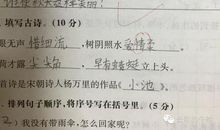 填写古诗。(10 分)
眼无声惜细流,树阴照水爱晴柔
荷才露尖尖角,早有蜻蜓立上头。
首诗是宋朝诗人杨万里的作品《小池》。
、排列句子顺序,将序号写在括号里。(5 分)
2)我没有带雨伞,怎么回家呢?